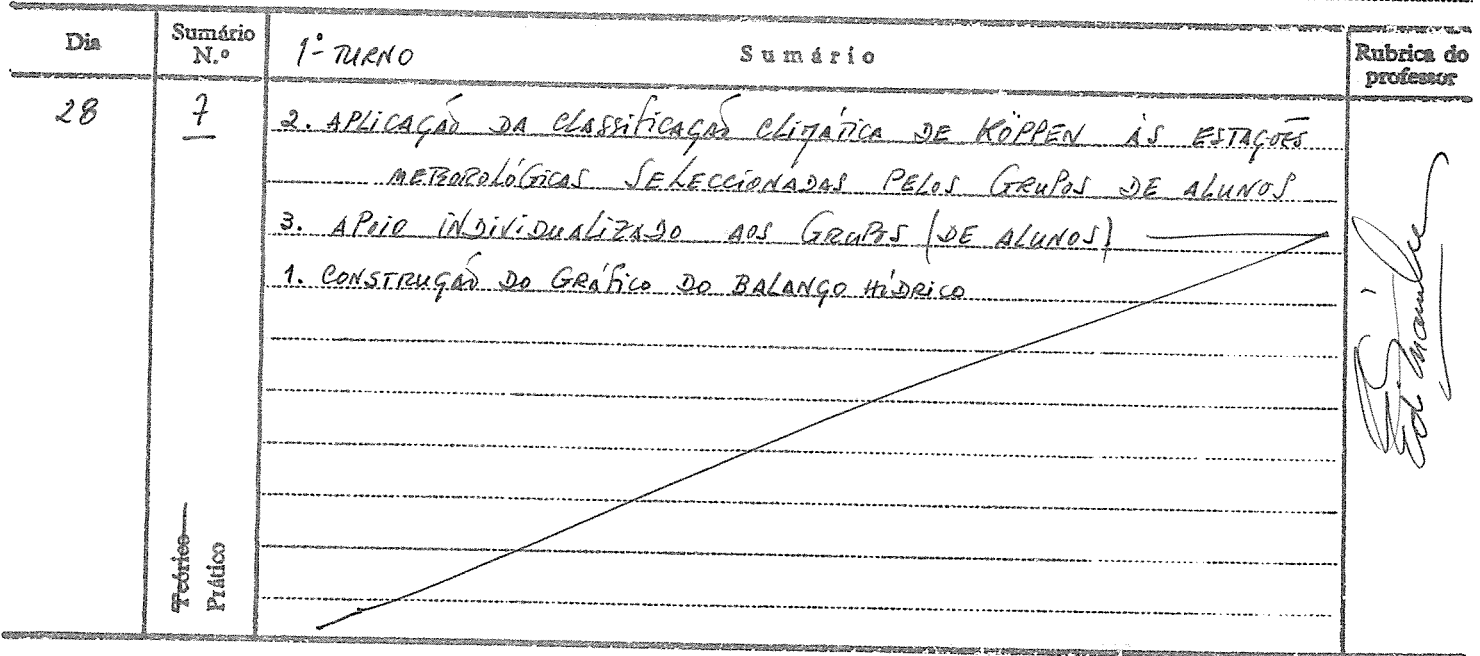 Dia
Sumário N.º
1º TURNO
Sumário
Rubrica do professor
28
7
2. APLICAÇÃO DA CLASSIFICAÇÃO CLIMÁTICA DE KÖPPEN ÀS ESTAÇÕES
METEOROLÓGICAS SELECCIONADAS PELOS GRUPOS DE ALUNOS
3. APOIO INDIVIDUALIZADO AOS GRUPOS (DE ALUNOS)
1. CONSTRUÇÃO DO GRÁFICO DO BALANÇO HÍDRICO
Teórico
Prático